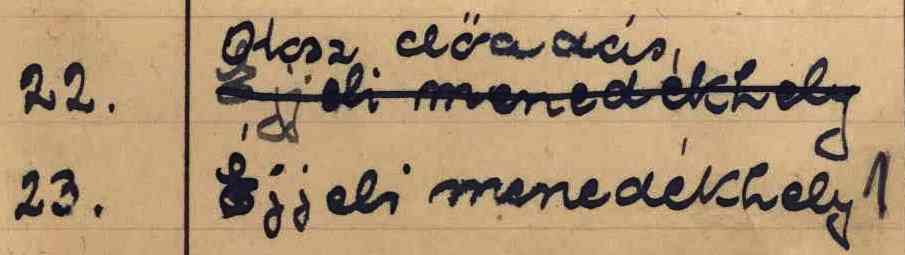 Olasz előadás,
22. Éjjeli menedékhely
23. Éjjeli menedékhely!